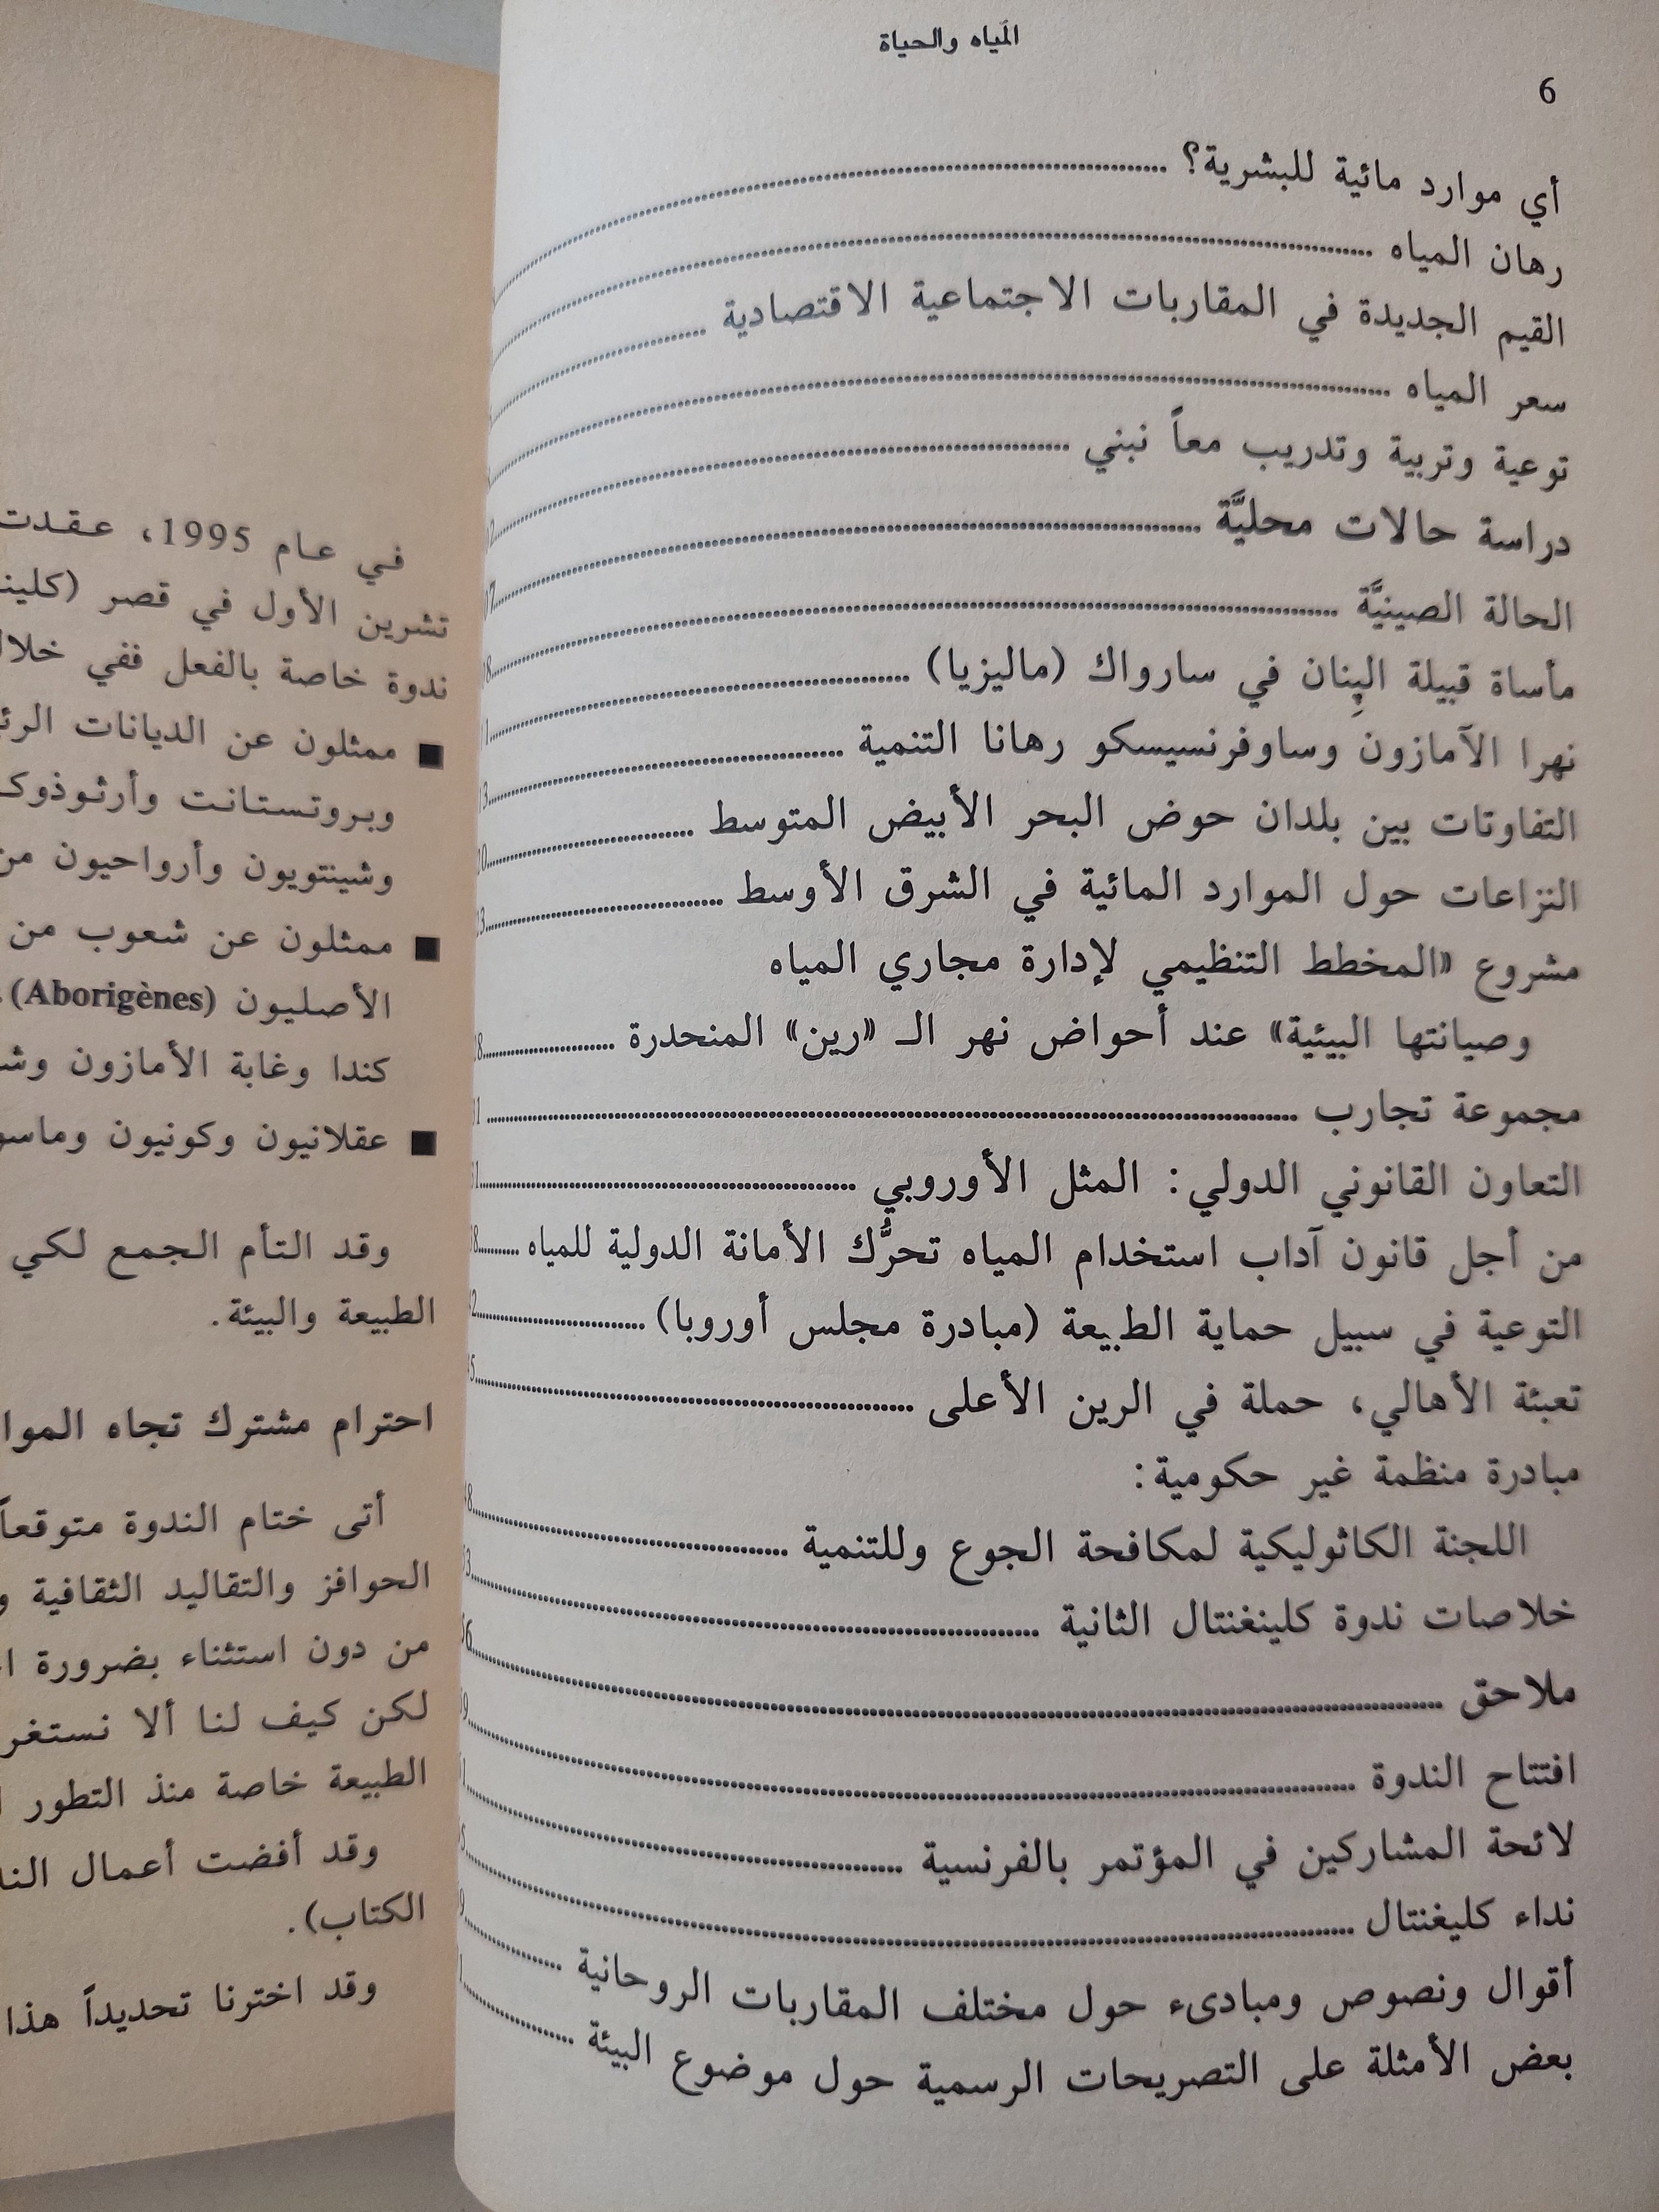 المياه والحياة
6
أي موارد مائية للبشرية؟
رهان المياه
القيم الجديدة في المقاربات الاجتماعية الاقتصادية
سعر المياه
توعية وتربية وتدريب معاً نبني
دراسة حالات محليَّة
الحالة الصينيَّة
مأساة قبيلة الپِنان في سارواك (ماليزيا)
نهرا الآمازون وساوفرنسيسكو رهانا التنمية
التفاوتات بين بلدان حوض البحر الأبيض المتوسط
النزاعات حول الموارد المائية في الشرق الأوسط
مشروع «المخطط التنظيمي لإدارة مجاري المياه
وصيانتها البيئية» عند أحواض نهر الـ «رين» المنحدرة
مجموعة تجارب
التعاون القانوني الدولي: المثل الأوروبي
من أجل قانون آداب استخدام المياه تحرُّك الأمانة الدولية للمياه
التوعية في سبيل حماية الطبيعة (مبادرة مجلس أوروبا)
تعبئة الأهالي، حملة في الرين الأعلى
مبادرة منظمة غير حكومية:
اللجنة الكاثوليكية لمكافحة الجوع وللتنمية
خلاصات ندوة كلينغنتال الثانية
ملاحق
افتتاح الندوة
لائحة المشاركين في المؤتمر بالفرنسية
نداء كليغنتال
أقوال ونصوص ومبادىء حول مختلف المقاربات الروحانية
بعض الأمثلة على التصريحات الرسمية حول موضوع البيئة
في عام 1995، عقدت
تشرين الأول في قصر
ندوة خاصة بالفعل ففي
■ ممثلون عن الديانات
وبروتستانت
وشينتويون وأرواحيون
■ ممثلون عن شعوب من
الأصليون (Aborigènes)
كندا وغابة الأمازون
■ عقلانيون وكونيون
وقد التأم الجمع لكي
الطبيعة والبيئة.
احترام مشترك تجاه
أتى ختام الندوة متوقعاً
الحوافز والتقاليد الثقافية
من دون استثناء بضرورة
لكن كيف لنا ألا
الطبيعة خاصة منذ التطور
وقد أفضت أعمال
الكتاب).
وقد اخترنا تحديداً هذا